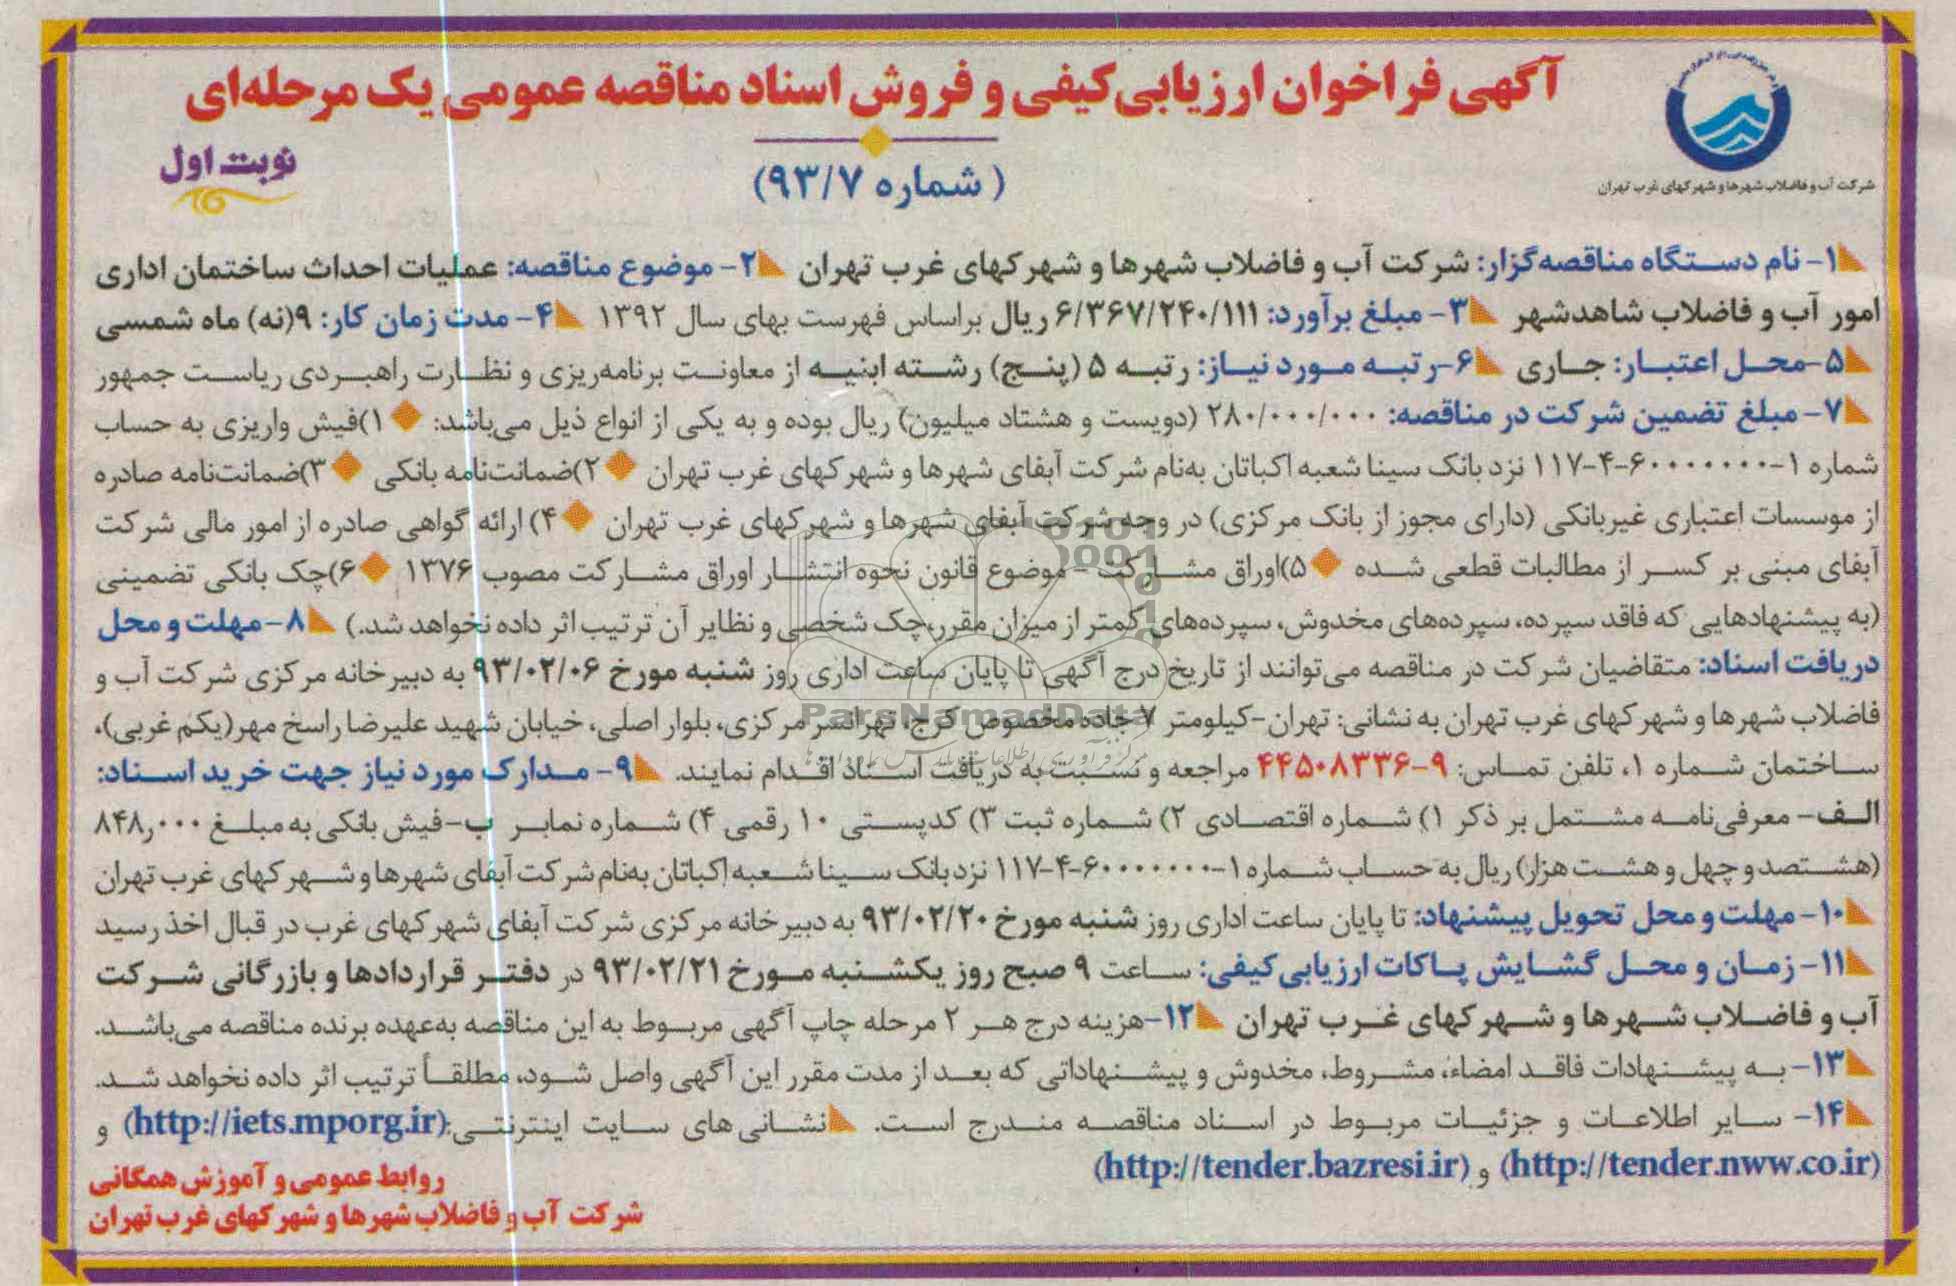 آگهی فراخوان ارزیابی‌کیفی و فروش اسناد مناقصه عمومی یک مرحله‌ای
(شماره ۹۳/۷)
نوبت اول
شرکت آب و فاضلاب شهرها و شهرکهای غرب تهران
۱- نام دستگاه مناقصه‌گزار: شرکت آب و فاضلاب شهرها و شهرکهای غرب تهران ۲- موضوع مناقصه: عملیات احداث ساختمان اداری
امور آب و فاضلاب شاهدشهر ۳- مبلغ برآورد: ۶/۳۶۷/۲۴۰/۱۱۱ ریال براساس فهرست بهای سال ۱۳۹۲ ۴- مدت زمان کار: ۹(نه) ماه شمسی
۵-محل اعتبار: جاری ۶-رتبه مورد نیاز: رتبه ۵ (پنج) رشته ابنیه از معاونت برنامه‌ریزی و نظارت راهبردی ریاست جمهور
۷- مبلغ تضمین شرکت در مناقصه: ۲۸۰/۰۰۰/۰۰۰ (دویست و هشتاد میلیون) ریال بوده و به یکی از انواع ذیل می‌باشد: ۱)فیش واریزی به حساب
شماره ۱-۶۰۰۰۰۰۰۰-۴-۱۱۷ نزد بانک سینا شعبه اکباتان به‌نام شرکت آبفای شهرها و شهرکهای غرب تهران ۲)ضمانت‌نامه بانکی ۳)ضمانت‌نامه صادره
از موسسات اعتباری غیربانکی (دارای مجوز از بانک مرکزی) در وجه شرکت آبفای شهرها و شهرکهای غرب تهران ۴) ارائه گواهی صادره از امور مالی شرکت
آبفای مبنی بر کسر از مطالبات قطعی شده ۵)اوراق مشارکت - موضوع قانون نحوه انتشار اوراق مشارکت مصوب ۱۳۷۶ ۶)چک بانکی تضمینی
(به پیشنهادهایی که فاقد سپرده، سپرده‌های مخدوش، سپرده‌های کمتر از میزان مقرر،چک شخصی و نظایر آن ترتیب اثر داده نخواهد شد.) ۸-مهلت و محل
دریافت اسناد: متقاضیان شرکت در مناقصه می‌توانند از تاریخ درج آگهی تا پایان ساعت اداری روز شنبه مورخ ۹۳/۰۲/۰۶ به دبیرخانه مرکزی شرکت آب و
فاضلاب شهرها و شهرکهای غرب تهران به نشانی: تهران-کیلومتر ۷ جاده مخصوص کرج، تهرانسر مرکزی، بلوار اصلی، خیابان شهید علیرضا راسخ مهر(یکم غربی)،
ساختمان شماره ۱، تلفن تماس: ۹-۴۴۵۰۸۳۳۶ مراجعه و نسبت به دریافت اسناد اقدام نمایند. ۹- مدارک مورد نیاز جهت خرید اسناد:
الف- معرفی‌نامه مشتمل بر ذکر ۱) شماره اقتصادی ۲) شماره ثبت ۳) کدپستی ۱۰ رقمی ۴) شماره نمابر ب-فیش بانکی به مبلغ ۸۴۸٫۰۰۰
(هشتصد و چهل و هشت هزار) ریال به حساب شماره ۱-۶۰۰۰۰۰۰۰-۴-۱۱۷ نزد بانک سینا شعبه اکباتان به‌نام شرکت آبفای شهرها و شهرکهای غرب تهران
۱۰- مهلت و محل تحویل پیشنهاد: تا پایان ساعت اداری روز شنبه مورخ ۹۳/۰۲/۲۰ به دبیرخانه مرکزی شرکت آبفای شهرکهای غرب در قبال اخذ رسید
۱۱- زمان و محل گشایش پاکات ارزیابی‌کیفی: ساعت ۹ صبح روز یکشنبه مورخ ۹۳/۰۲/۲۱ در دفتر قراردادها و بازرگانی شرکت
آب و فاضلاب شهرها و شهرکهای غرب تهران ۱۲-هزینه درج هر ۲ مرحله چاپ آگهی مربوط به این مناقصه به‌عهده برنده مناقصه می‌باشد.
۱۳- به پیشنهادات فاقد امضاء، مشروط، مخدوش و پیشنهاداتی که بعد از مدت مقرر این آگهی واصل شود، مطلقاً ترتیب اثر داده نخواهد شد.
۱۴- سایر اطلاعات و جزئیات مربوط در اسناد مناقصه مندرج است. نشانی‌های سایت اینترنتی:(http://iets.mporg.ir) و
(http://tender.nww.co.ir) و (http://tender.bazresi.ir)
روابط عمومی و آموزش همگانی
شرکت آب و فاضلاب شهرها و شهرکهای غرب تهران
ParsNamadData